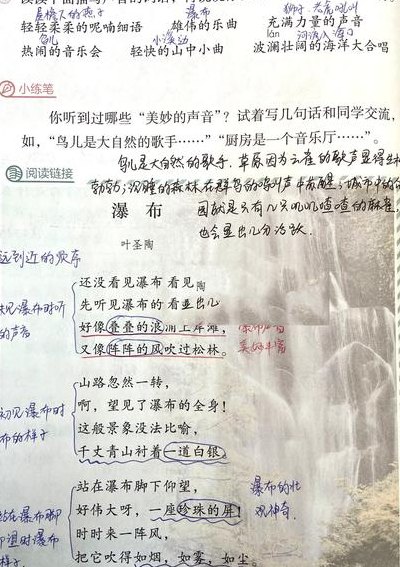 屋檐下的燕子 瀑布 狮子、老虎吼叫
轻轻柔柔的呢喃细语 雄伟的乐曲 充满力量的声音
鸟儿 小溪流动 lán 河流入海口
热闹的音乐会 轻快的山中小曲 波澜壮阔的海洋大合唱
小练笔
你听到过哪些“美妙的声音”？试着写几句话和同学交流，
如，“鸟儿是大自然的歌手……”“厨房是一个音乐厅……”。
鸟儿是大自然的歌手，草原因为云雀的歌声显得生机
阅读链接
勃勃；沉睡的森林在群鸟的鸣叫声中苏醒；城市中的
瀑布
因就是只有几只叽叽喳喳的麻雀，
也会显出几分活跃。
叶圣陶
远到近的顺序
还没看见瀑布 看见陶
先听见瀑布的 看显出儿
见瀑布时听
好像叠叠的浪涌上岸滩，
的声音
又像阵阵的风吹过松林。
山路忽然一转，
啊，望见了瀑布的全身！
初见瀑布时
这般景象没法比喻，
布的样子
千丈青山衬着一道白银。
站在瀑布脚下仰望，
瀑布的壮
好伟大呀，一座珍珠的屏！
观神奇。
站在瀑布脚
时时来一阵风，
仰望时瀑布
把它吹得如烟，如雾，如尘。
样子